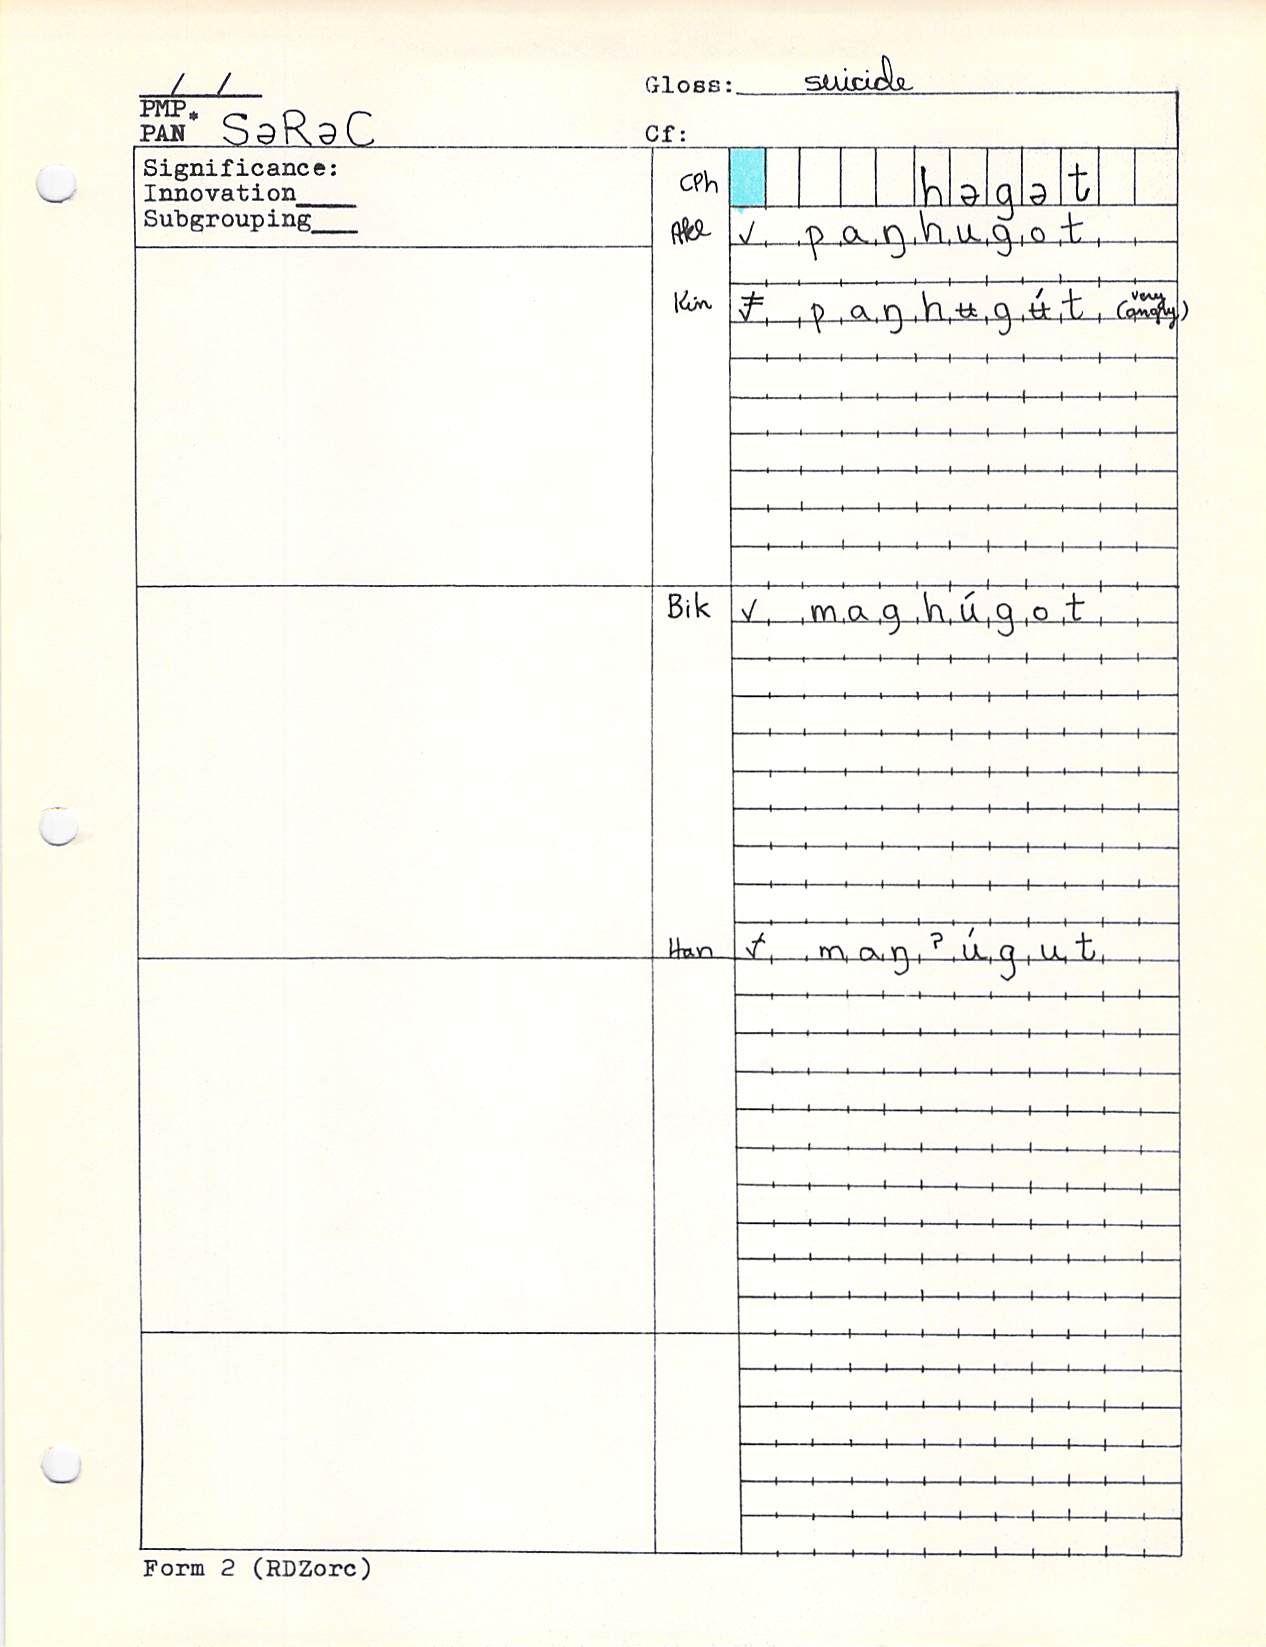 / /
Gloss: suicide
PMP
PAN * SəRəC
Cf:
Significance:
Innovation____
Subgrouping___
CPh həgət
Akl ✓ paŋhugot
Kin ≠ paŋhʉgʉ́t (very angry)
Bik ✓ maghúgot
Han maŋʔúgut
Form 2 (RDZorc)